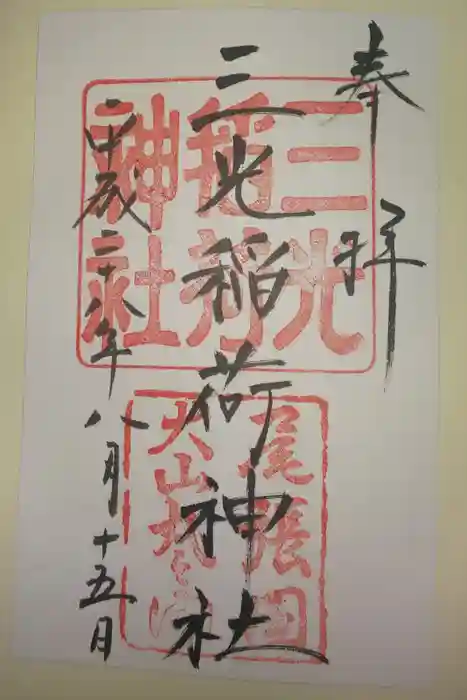 奉拝
三光稲荷神社
平成二十八年八月十五日
三光
稲荷
神社
尾張国
犬山